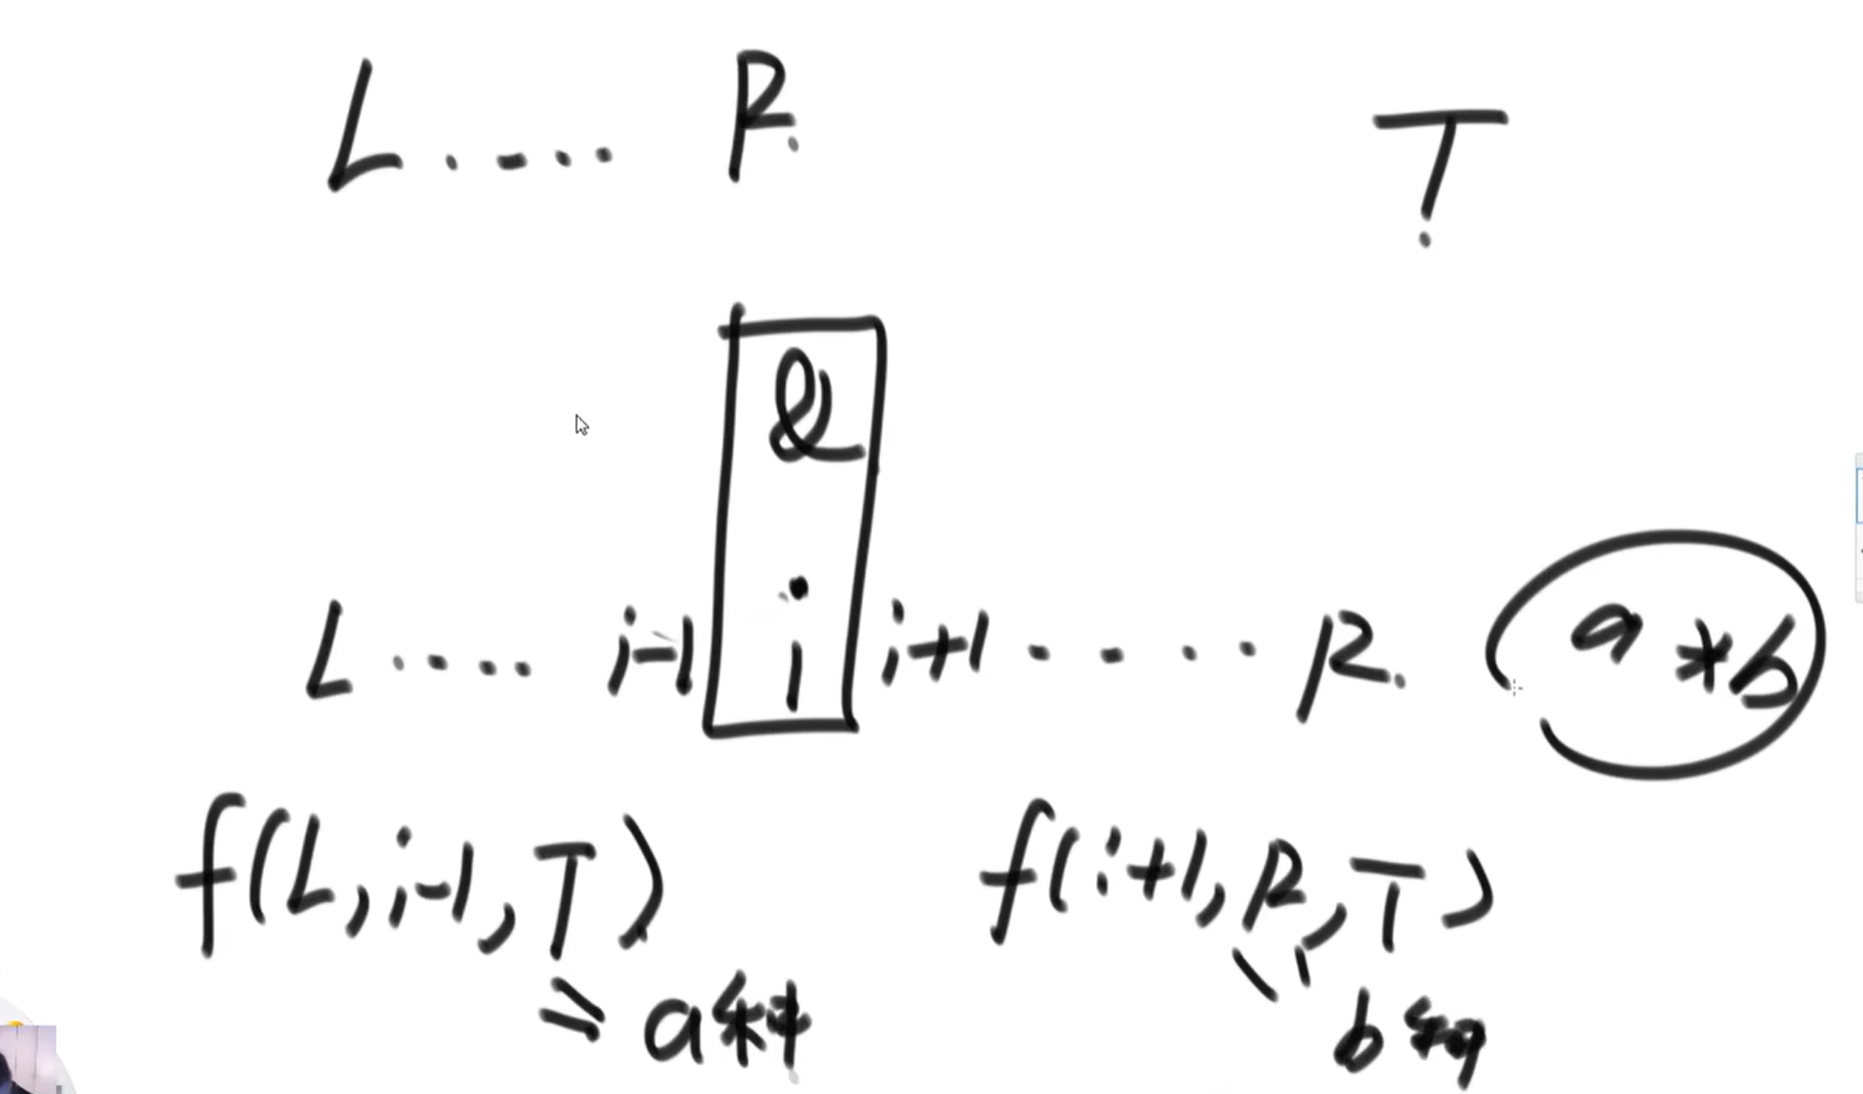 L . . . . R.
T
&
L . . . . i-1 i i+1 . . . . R. a*b
f(L, i-1, T) f(i+1, R, T)
a种
b种